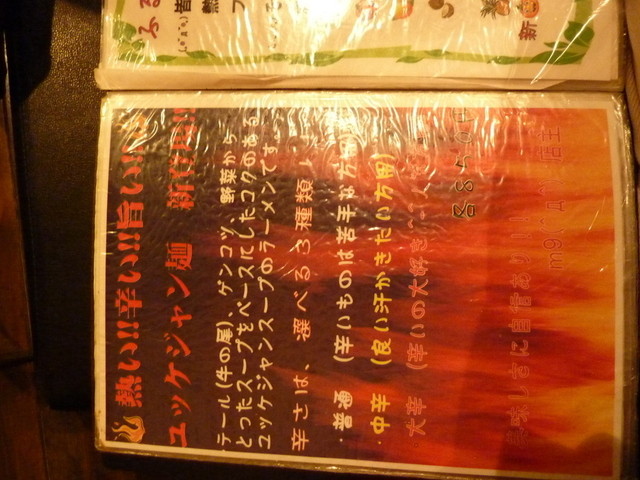 熱い!!辛い!!旨い!!
ユッケジャン麺 新登場!!
テール(牛の尾)、ゲンコツ、野菜から
とったスープをベースにしたコクのある
ユッケジャンスープのラーメンです。
辛さは、選べる3種類!
・普通 (辛いものは苦手な方用)
・中辛 (良い汗がかきたい方用)
大辛 (辛いの大好き
各850円
美味しさに自信あり!!
m9(^Д^) 店主
ふる
新